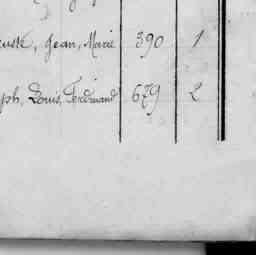 Jean, Marie 390 1
ph, Louis, Ferdinand 679 2